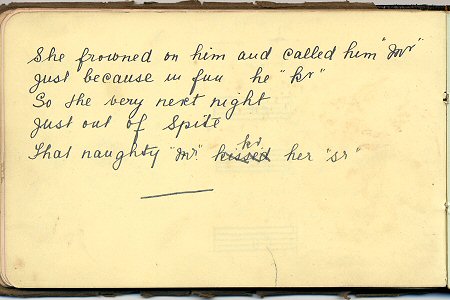 She frowned on him and called him "Mr"
Just because in fun he "kr"
So the very next night
Just out of Spite
That naughty "Mr." kissed kr. her "sr"